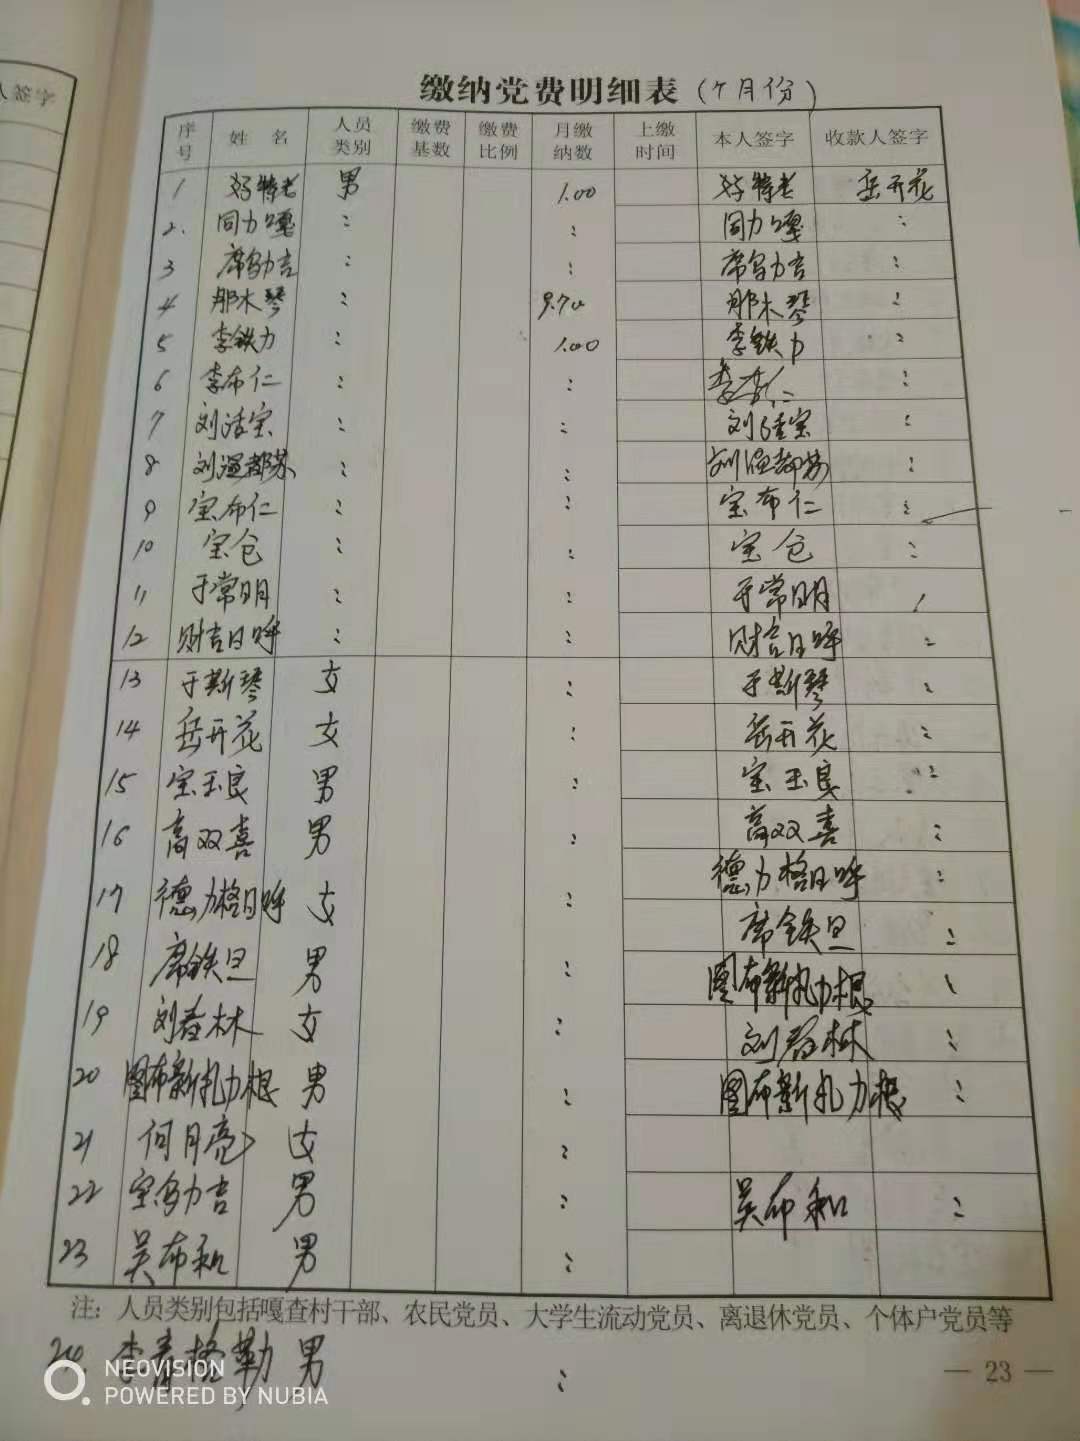 人签字
缴纳党费明细表(个月份)
序号 姓 名 人员类别 缴费基数 缴费比例 月缴纳数 上缴时间 本人签字 收款人签字
1 好特老 男 1.00 好特老 岳开花
2. 同力嘎 〃 〃 同力嘎 〃
3 席乌力吉 〃 〃 席乌力吉 〃
4 那木琴 〃 9.70 那木琴 〃
5 李铁力 〃 1.00 李铁力 〃
6 李布仁 〃 〃 李布仁 〃
7 刘活宝 〃 〃 刘活宝 〃
8 刘温都苏 〃 〃 刘温都苏 〃
9 宝布仁 〃 〃 宝布仁 〃
10 宝仓 〃 〃 宝仓 〃
11 于常明 〃 〃 于常明 〃
12 财吉日呼 〃 〃 财吉日呼 〃
13 于斯琴 女 〃 于斯琴 〃
14 岳开花 女 〃 岳开花 〃
15 宝玉良 男 〃 宝玉良 〃
16 高双喜 男 〃 高双喜 〃
17 德力格日呼 女 〃 德力格日呼 〃
18 席铁旦 男 〃 席铁旦 〃
19 刘春林 女 〃 图布新扎力根 〃
刘春林 〃
20 图布新扎力根 男 〃 图布新扎力根 〃
21 何月亮 女 〃
22 宝乌力吉 男 〃 吴布和 〃
23 吴布和 男 〃
注:人员类别包括嘎查村干部、农民党员、大学生流动党员、离退休党员、个体户党员等
24. 李青格勒 男 〃
— 23 —
NEOVISION
POWERED BY NUBIA